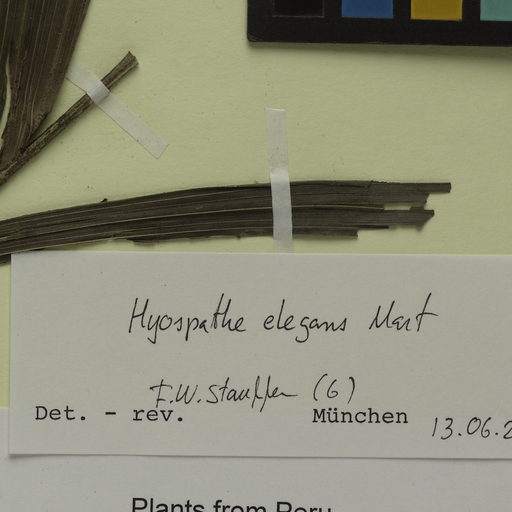 Hyospathe elegans Mart
F.W. Stauffer (G)
Det. - rev. München 13.06.2
Plants from Peru